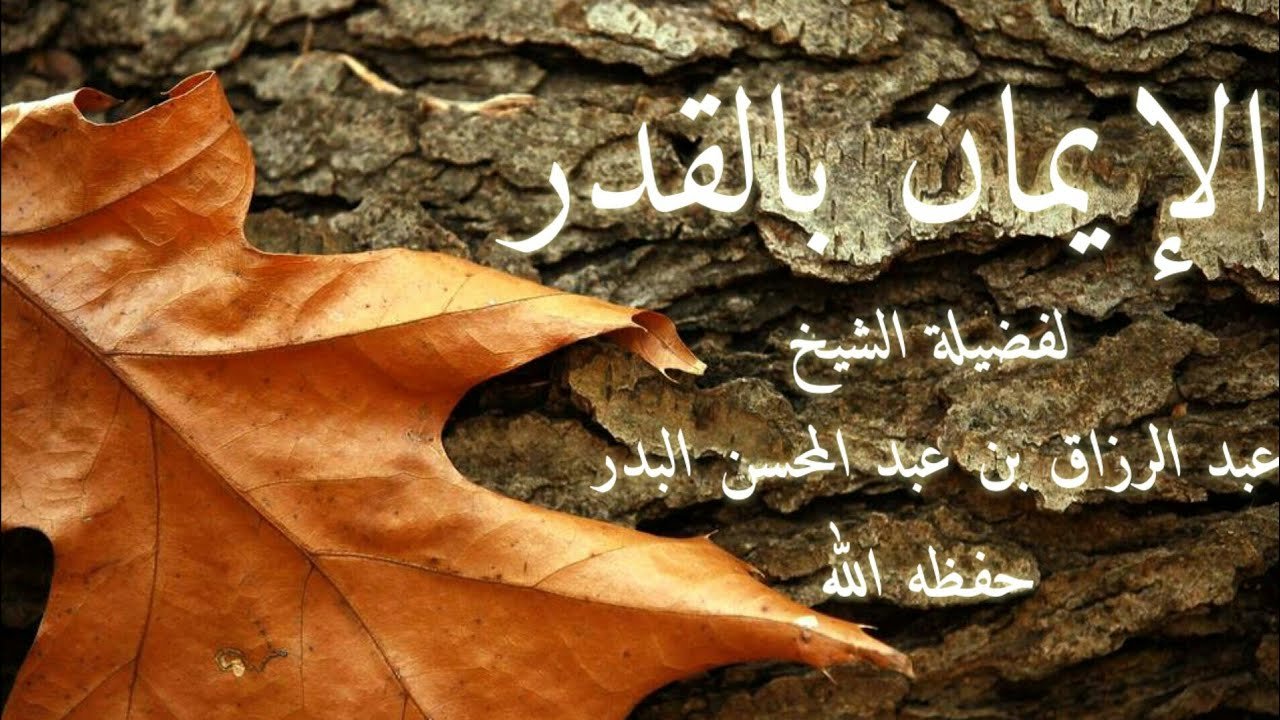 الإيمان بالقدر
لفضيلة الشيخ
عبد الرزاق بن عبد المحسن البدر
حفظه الله